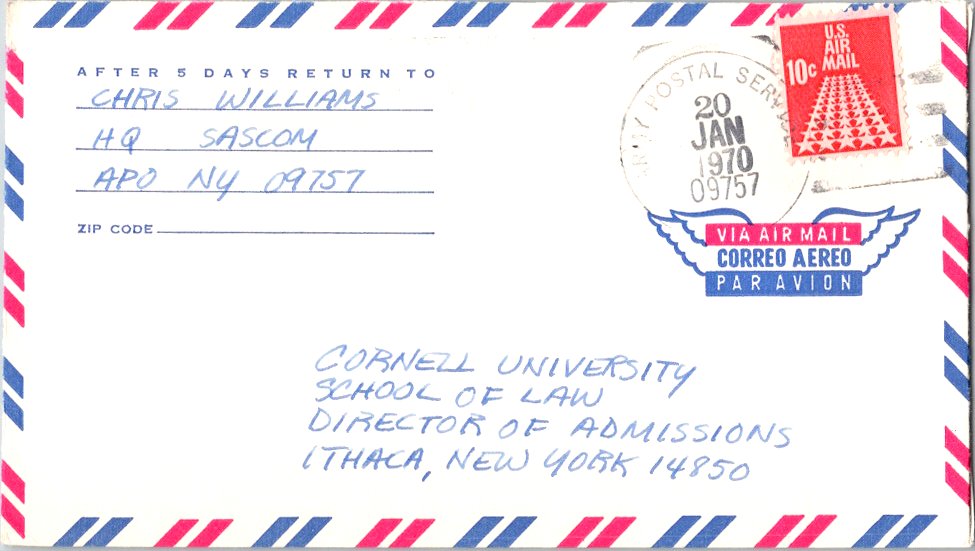 AFTER 5 DAYS RETURN TO
CHRIS WILLIAMS
HQ SASCOM
APO NY 09757
ZIP CODE
ARMY POSTAL SERVICE
20
JAN
1970
09757
U.S.
AIR
MAIL
10c
VIA AIR MAIL
CORREO AEREO
PAR AVION
CORNELL UNIVERSITY
SCHOOL OF LAW
DIRECTOR OF ADMISSIONS
ITHACA, NEW YORK 14850